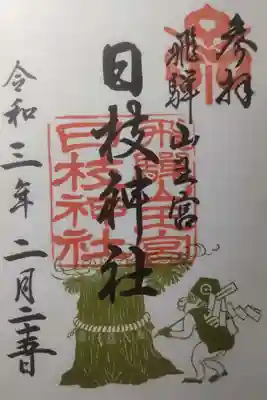 参拝
飛騨山王宮
日枝神社
令和三年二月二十三日
飛騨山王宮
日枝神社